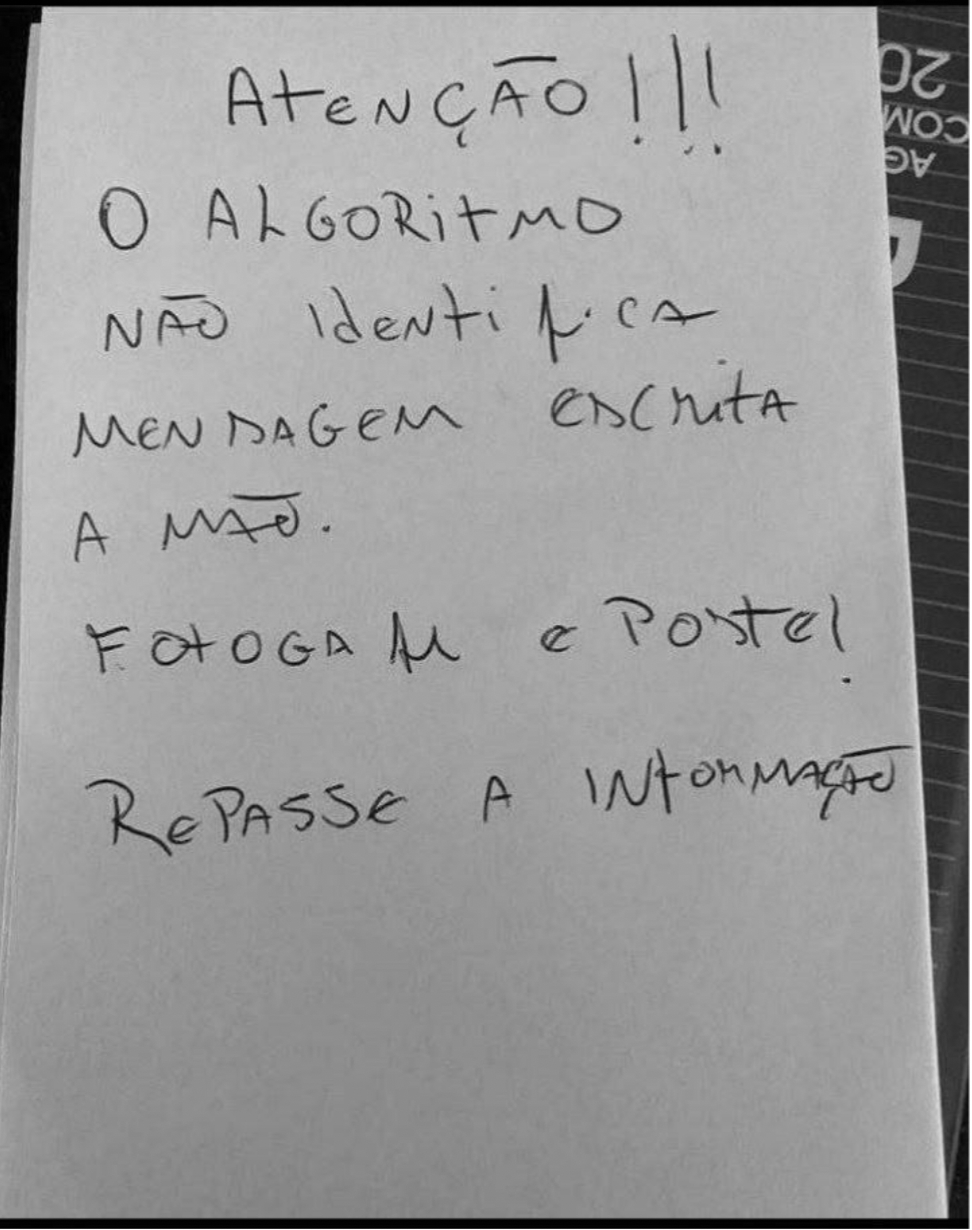 Atenção!!!
O ALGORitmo
NÃO identifica
MENSAGEM escrita
A MÃO.
FOtOGAfe e Poste!
RePASSe A INformação
20
COM
AG